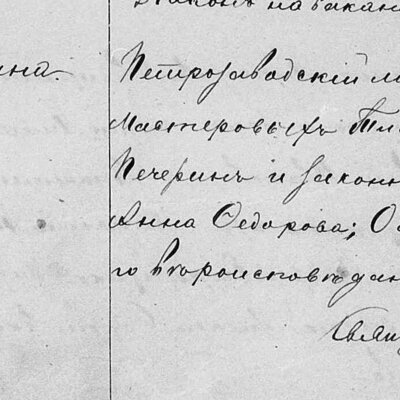 Законъ на вакан
ина.
Петрозаводскiй м
Мастеровыхъ
Печеринъ и законн
Анна Ѳедорова; О
го второисповѣдан
Свящ